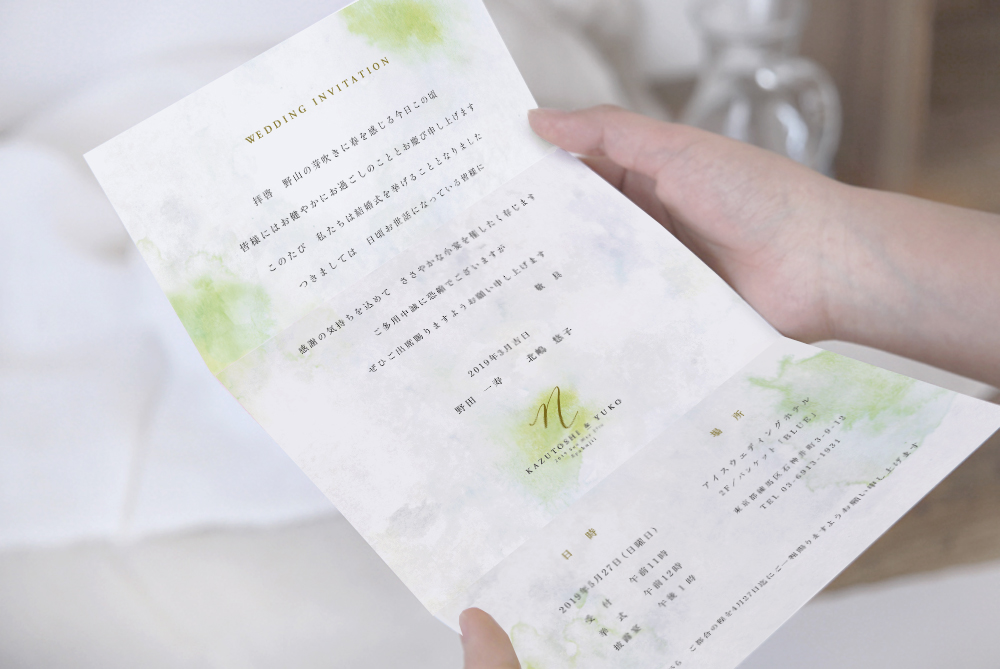 WEDDING INVITATION
拝啓　野山の芽吹きに春を感じる今日この頃
皆様にはお健やかにお過ごしのこととお慶び申し上げます
このたび　私たちは結婚式を挙げることとなりました
つきましては　日頃お世話になっている皆様に
感謝の気持ちを込めて　ささやかな小宴を催したく存じます
ご多用中誠に恐縮でございますが
ぜひご出席賜りますようお願い申し上げます
敬具
2019年3月吉日
野田　一寿　　北嶋　悠子
n
KAZUTOSHI & YUKO
日　時
2019年5月27日(日曜日)
受　付　午前11時
挙　式　午前12時
披露宴　午後 1 時
場　所
アイスウエディングホテル
2F/バンケット「BLUE」
東京都練馬区石神井町3-9-12
TEL 03-6913-1931
ご都合の程を4月27日迄にご一報賜りますようお願い申し上げます